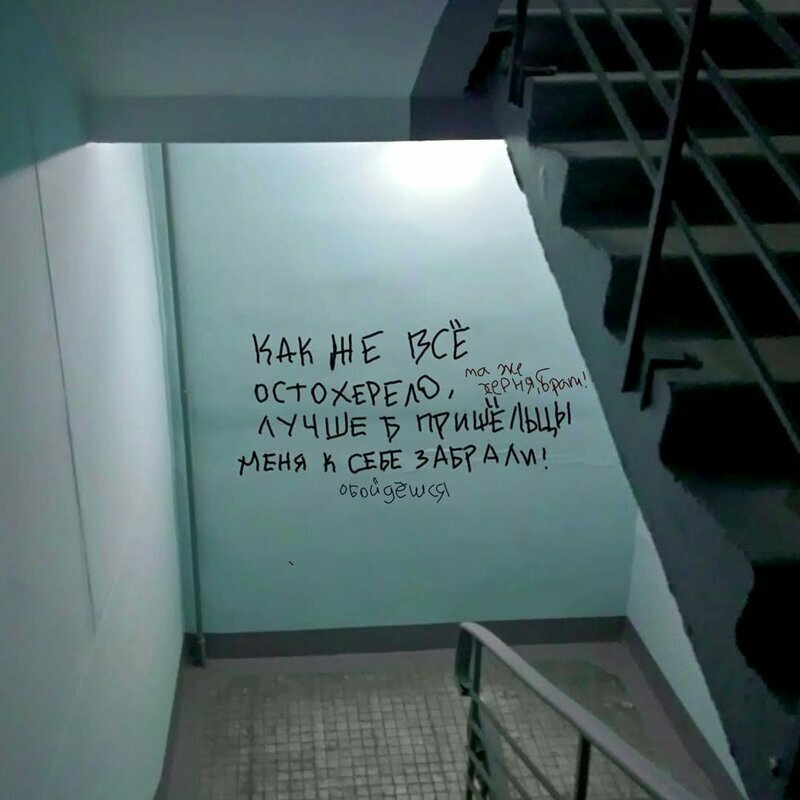 КАК ЖЕ ВСЁ
ОСТОХЕРЕЛО,
та же
херня, брат!
ЛУЧШЕ Б ПРИШЁЛЬЦЫ
МЕНЯ К СЕБЕ ЗАБРАЛИ!
обойдёшся